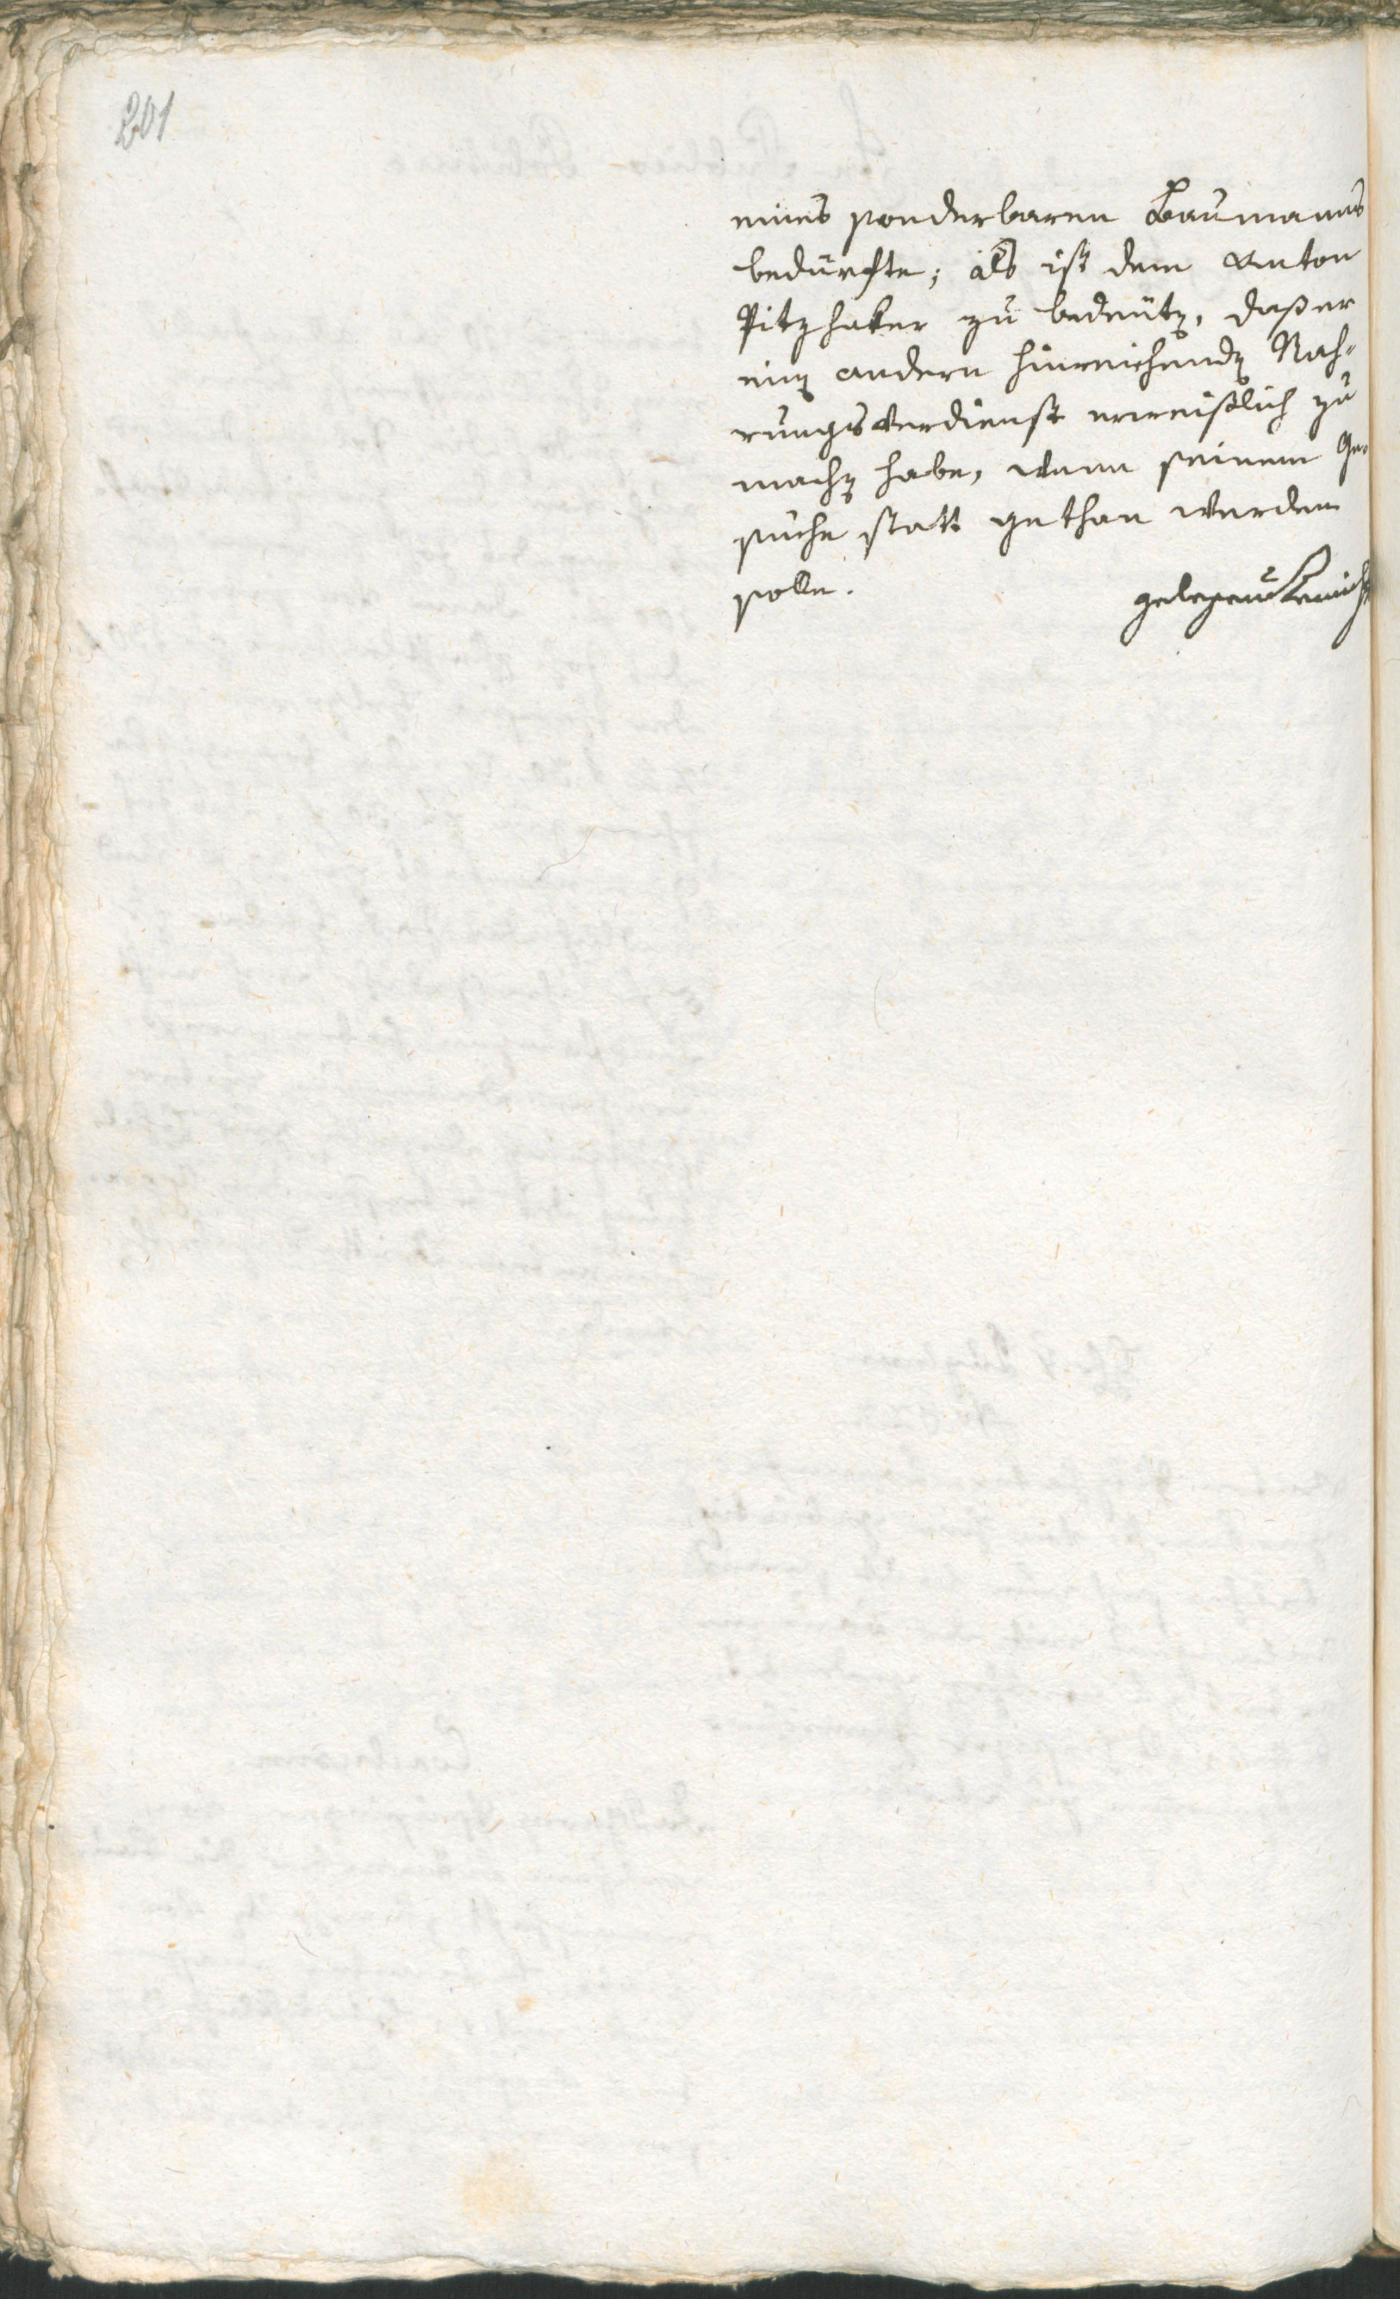 201
eines sonderbaren Baumanns
bedürfte; als ist dem Anton
Pitzhaker zu bedeuten, daß er
einen andern hinreichenden Nah-
rungsverdienst erweißlich zu
machen habe, wann seinem Ge-
suche statt gethan werden
solle.